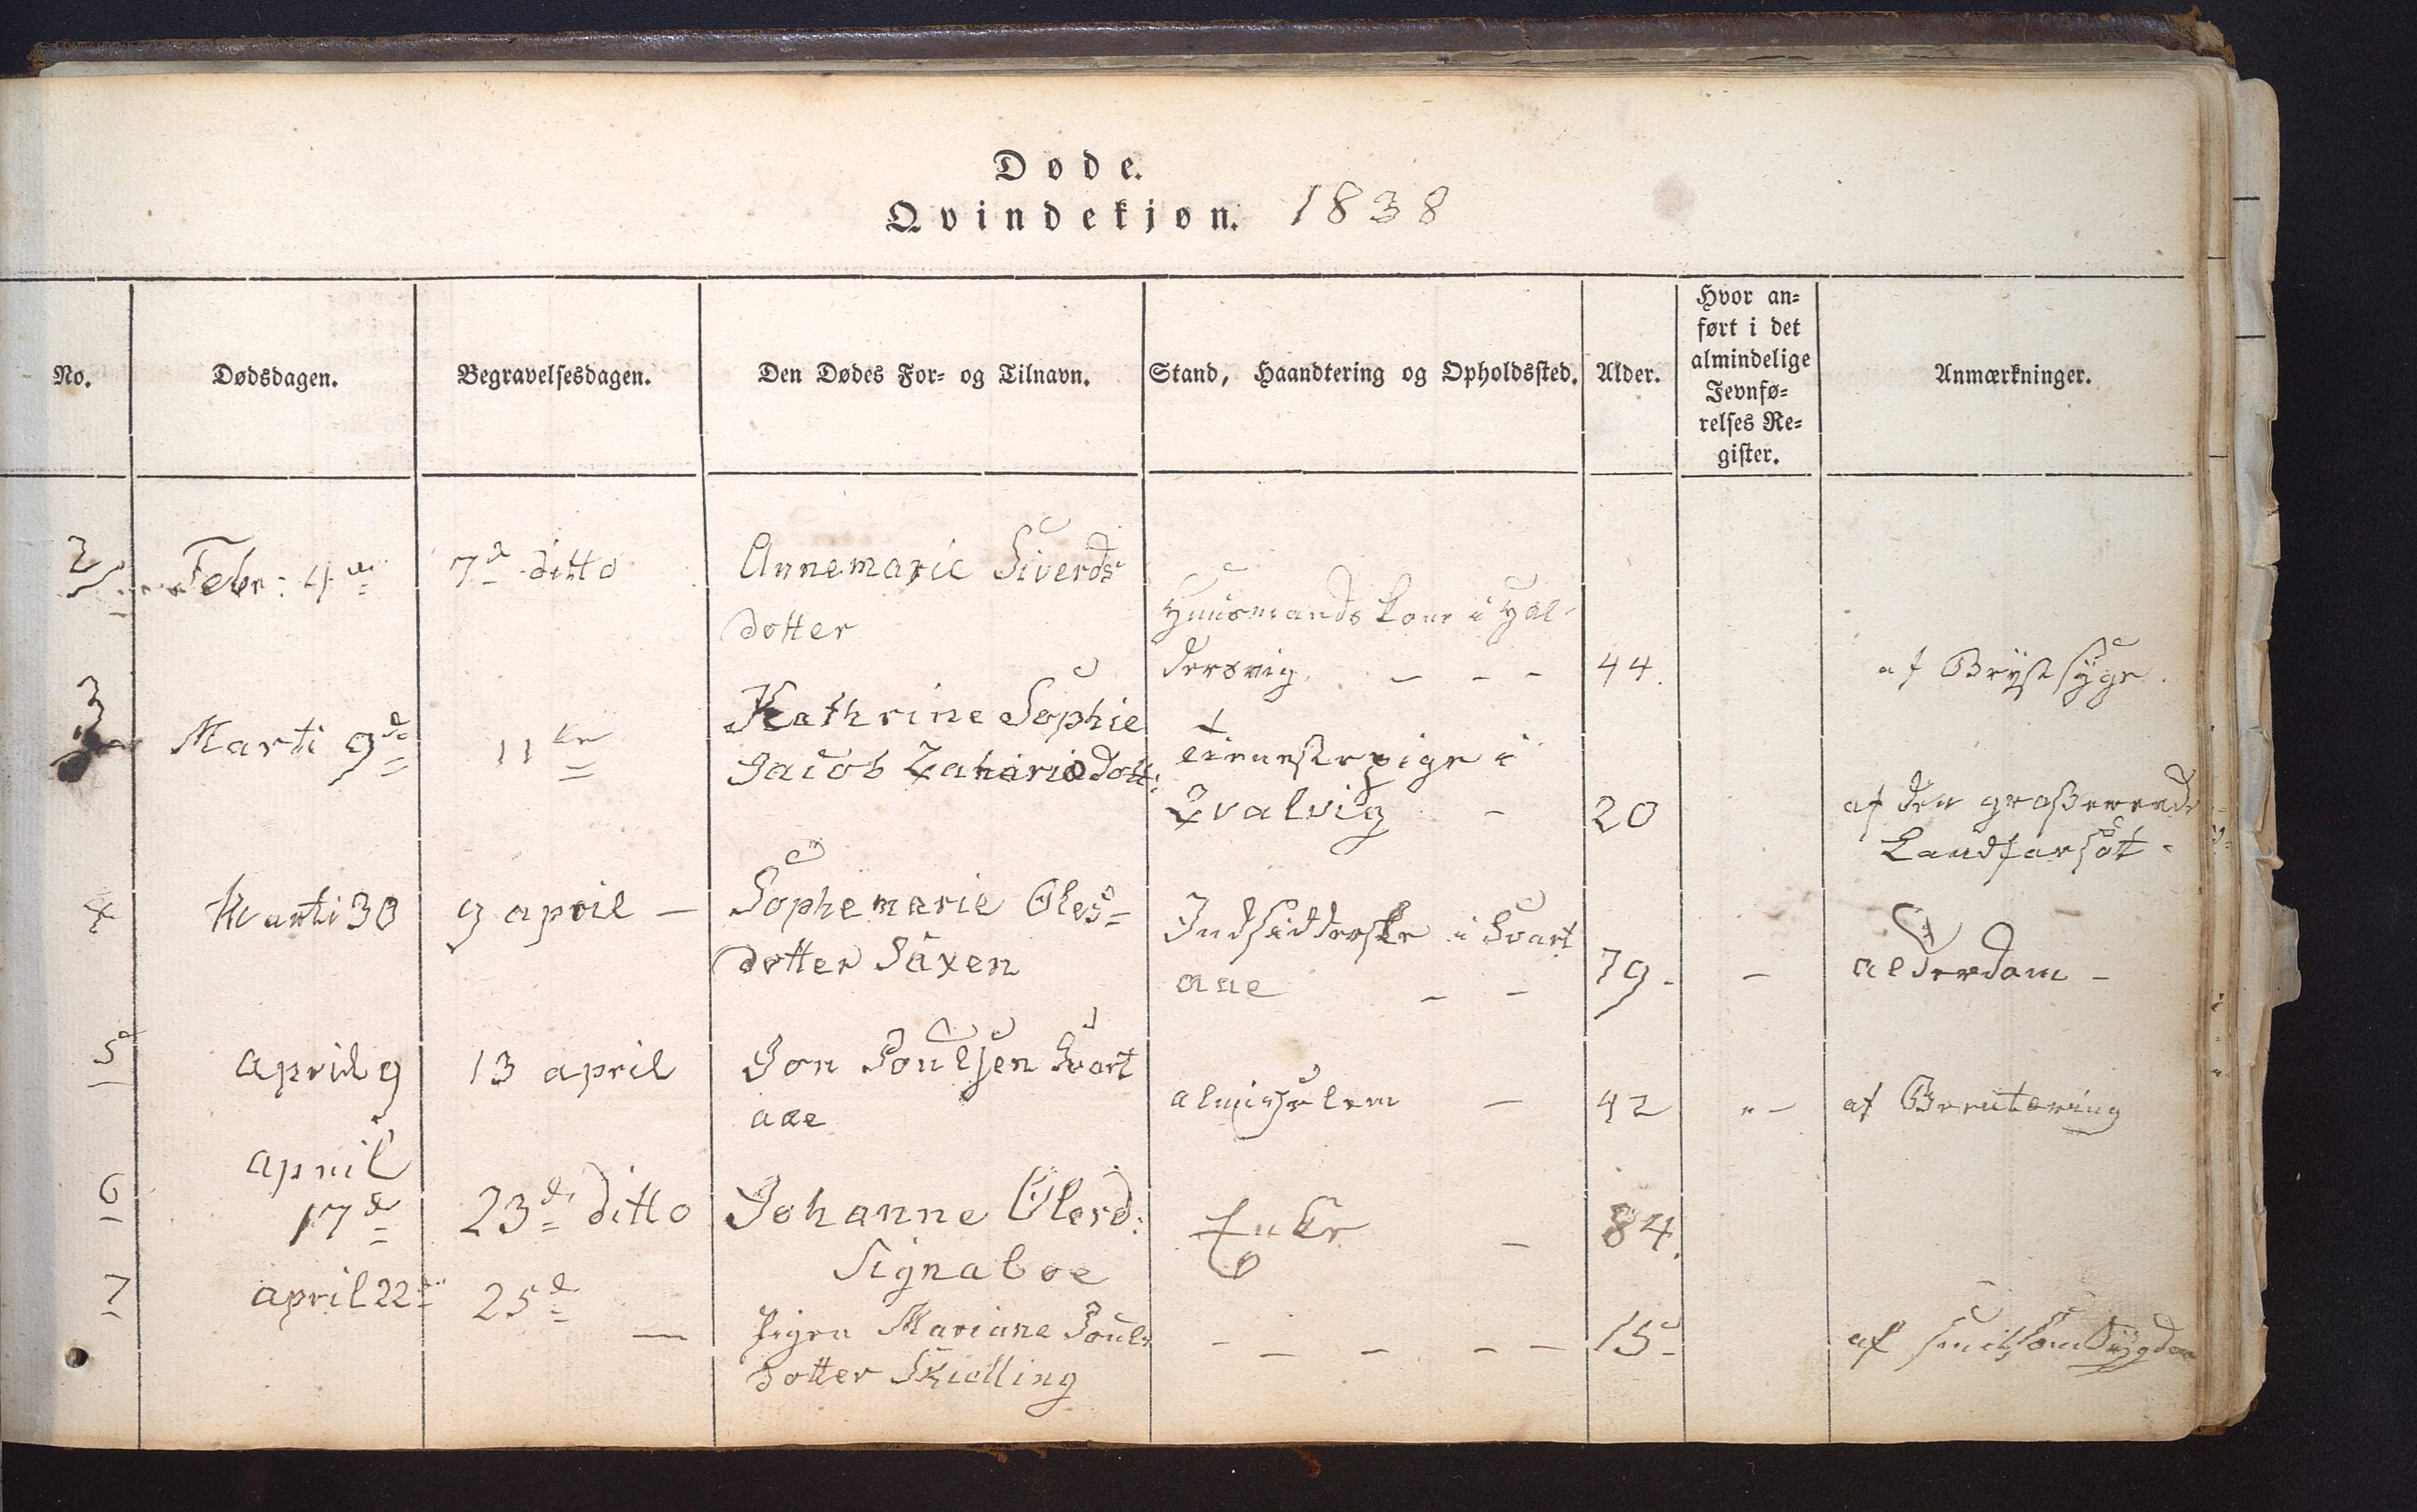 Døde.
Qvindekjøn. 1838
No.
Dødsdagen.
Begravelsesdagen.
Den Dødes For- og Tilnavn.
Stand, Haandtering og Opholdssted.
Alder.
Hvor an-
ført i det
almindelige
Jevnfø-
relses Re-
gister.
Anmærkninger.
2 Febr: 4de 7de ditto Annemarie Siverds
dotter
Huusmands kone i Hal-
dersvig. - - - 44. af Brystsyge.
3 Marti 9de 11te Kathrine Sophie
Jacob Zaharisdott:
tienestepige i
Qvalvig - 20 af den grasserende
Landfarsot.
4 Marti 30 9 april - Sophemarie Oles=
dotter Saxen
Indsidderske i Svart
aae - - 79. - alderdom -
5 april 9 13 april Jon Poulsen Svart
aae
almisselem - 42 " - af Brutæring
6 april
17de 23de ditto Johanne Olesd:
Signaboe
Enke - 84.
7 april 22de 25de - Pigen Mariane Pouls
dotter Skielling - - - - - 15 - af